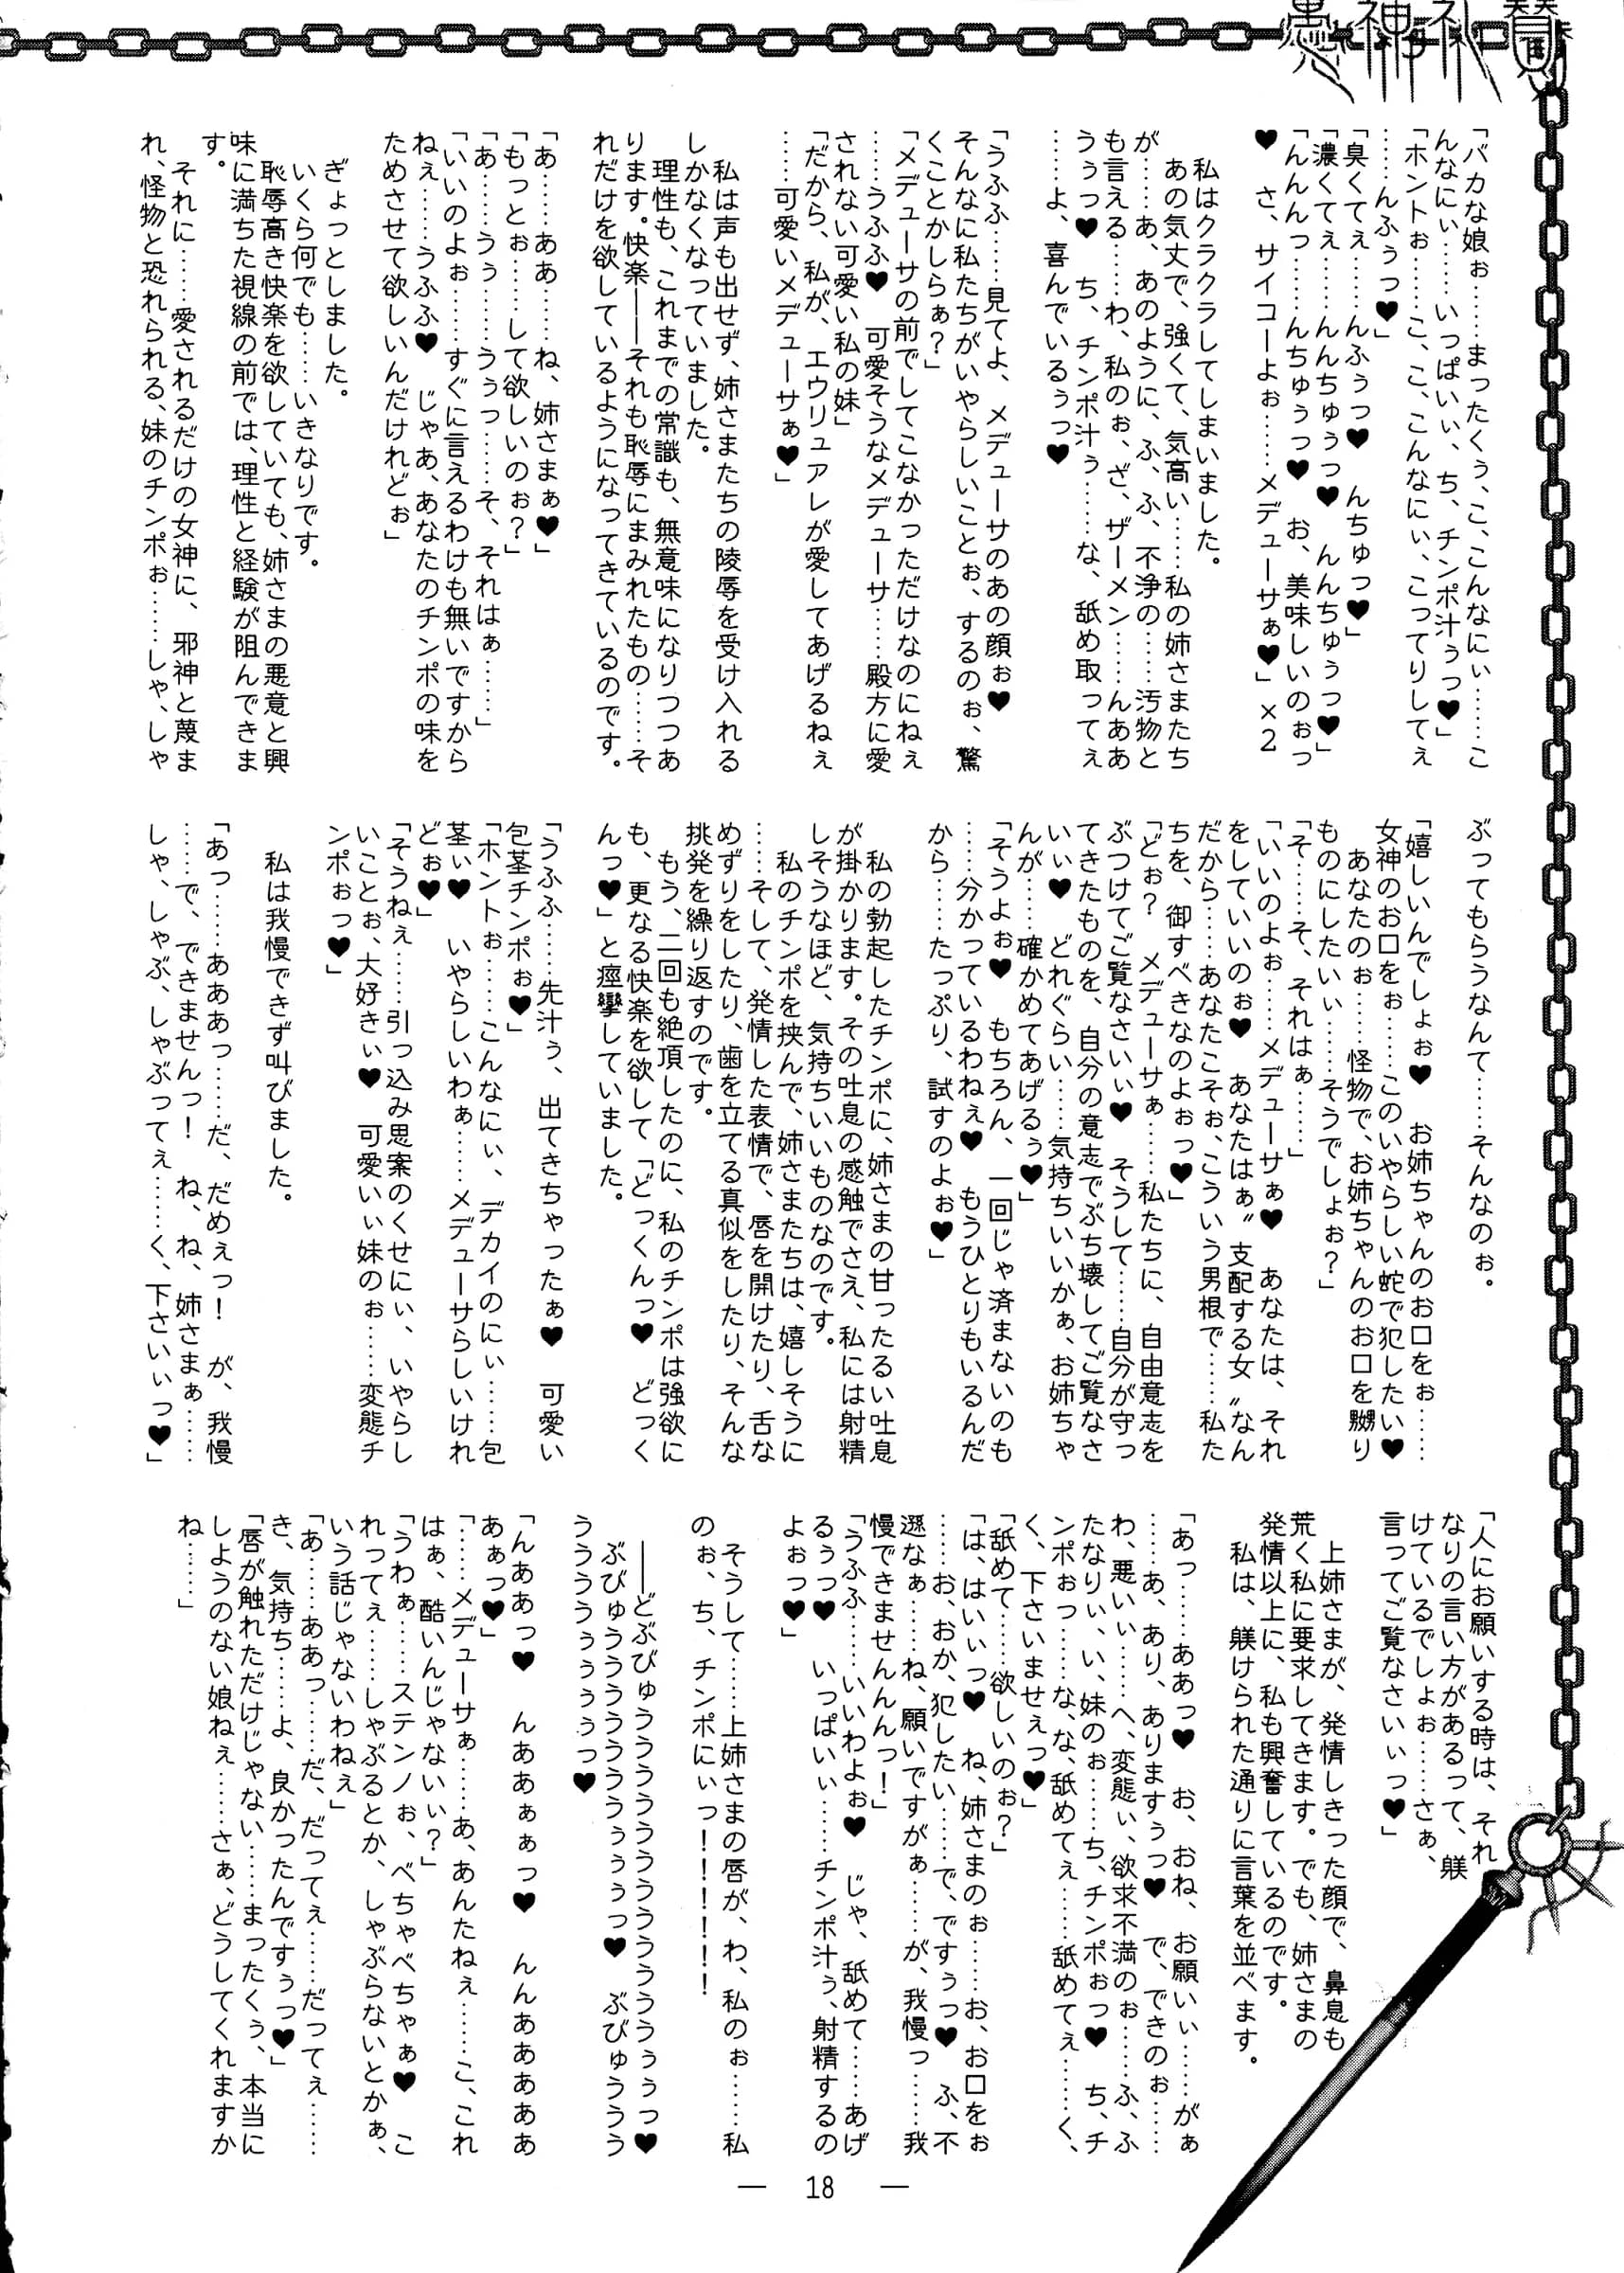 愚神礼賛
「バカな娘ぉ……まったくぅ、こ、こんなにぃ……こ
んなにぃ……いっぱいぃ、ち、チンポ汁ぅっ♥」
「ホントぉ……こ、こ、こんなにぃ、こってりしてぇ
……んふぅっ♥」
「臭くてぇ……んふぅっ♥　んちゅっ♥」
「濃くてぇ……んんちゅぅっ♥　んんちゅぅっ♥」
「んんんっ……んちゅぅっ♥　お、美味しいのぉっ
♥　さ、サイコーよぉ……メデューサぁ♥」×2
私はクラクラしてしまいました。
あの気丈で、強くて、気高い……私の姉さまたち
が……あ、あのように、ふ、ふ、不浄の……汚物と
も言える……わ、私のぉ、ざ、ザーメン……んああ
うぅっ♥　ち、チンポ汁ぅ……な、舐め取ってぇ
……よ、喜んでいるぅっ♥
「うふふ……見てよ、メデューサのあの顔ぉ♥
そんなに私たちがいやらしいことぉ、するのぉ、驚
くことかしらぁ？」
「メデューサの前でしてこなかっただけなのにねぇ
……うふふ♥　可愛そうなメデューサ……殿方に愛
されない可愛い私の妹」
「だから、私が、エウリュアレが愛してあげるねぇ
……可愛いメデューサぁ♥」
私は声も出せず、姉さまたちの陵辱を受け入れる
しかなくなっていました。
理性も、これまでの常識も、無意味になりつつあ
ります。快楽――それも恥辱にまみれたもの……そ
れだけを欲しているようになってきているのです。
「あ……ああ……ね、姉さまぁ♥」
「もっとぉ……して欲しいのぉ？」
「あ……うぅ……うぅっ……そ、それはぁ……」
「いいのよぉ……すぐに言えるわけも無いですから
ねぇ……うふふ♥　じゃあ、あなたのチンポの味を
ためさせて欲しいんだけれどぉ」
ぎょっとしました。
いくら何でも……いきなりです。
恥辱高き快楽を欲していても、姉さまの悪意と興
味に満ちた視線の前では、理性と経験が阻んできま
す。
それに……愛されるだけの女神に、邪神と蔑ま
れ、怪物と恐れられる、妹のチンポぉ……しゃ、しゃ
ぶってもらうなんて……そんなのぉ。
「嬉しいんでしょぉ♥　お姉ちゃんのお口をぉ……
女神のお口をぉ……このいやらしい蛇で犯したい♥
あなたのぉ……怪物で、お姉ちゃんのお口を嬲り
ものにしたいぃ……そうでしょぉ？」
「そ……そ、それはぁ……」
「いいのよぉ……メデューサぁ♥　あなたは、それ
をしていいのぉ♥　あなたはぁ〝支配する女〟なん
だから……あなたこそぉ、こういう男根で……私た
ちを、御すべきなのよぉっ♥」
「どぉ？　メデューサぁ……私たちに、自由意志を
ぶつけてご覧なさいぃ♥　そうして……自分が守っ
てきたものを、自分の意志でぶち壊してご覧なさ
いぃ♥　どれぐらい……気持ちいいかぁ、お姉ちゃ
んが……確かめてあげるぅ♥」
「そうよぉ♥　もちろん、一回じゃ済まないのも
……分かっているわねぇ♥　もうひとりもいるんだ
から……たっぷり、試すのよぉ♥」
私の勃起したチンポに、姉さまの甘ったるい吐息
が掛かります。その吐息の感触でさえ、私には射精
しそうなほど、気持ちいいものなのです。
私のチンポを挟んで、姉さまたちは、嬉しそうに
……そして、発情した表情で、唇を開けたり、舌な
めずりをしたり、歯を立てる真似をしたり、そんな
挑発を繰り返すのです。
もう、二回も絶頂したのに、私のチンポは強欲に
も、更なる快楽を欲して「どっくんっ♥　どっく
んっ♥」と痙攣していました。
「うふふ……先汁ぅ、出てきちゃったぁ♥　可愛い
包茎チンポぉ♥」
「ホントぉ……こんなにぃ、デカイのにぃ……包
茎ぃ♥　いやらしいわぁ……メデューサらしいけれ
どぉ♥」
「そうねぇ……引っ込み思案のくせにぃ、いやらし
いことぉ、大好きぃ♥　可愛いぃ妹のぉ……変態チ
ンポぉっ♥」
私は我慢できず叫びました。
「あっ……あああっ……だ、だめぇっ！　が、我慢
……で、できませんっ！　ね、ね、姉さまぁ……
しゃ、しゃぶ、しゃぶってぇ……く、下さいぃっ♥」
「人にお願いする時は、それ
なりの言い方があるって、躾
けているでしょぉ……さぁ、
言ってご覧なさいぃっ♥」
上姉さまが、発情しきった顔で、鼻息も
荒く私に要求してきます。でも、姉さまの
発情以上に、私も興奮しているのです。
私は、躾けられた通りに言葉を並べます。
「あっ……ああっ♥　お、おね、お願いぃ……がぁ
……あ、あり、ありますぅっ♥　で、できのぉ……
わ、悪いぃ……へ、変態ぃ、欲求不満のぉ……ふ、ふ
たなりぃ、い、妹のぉ……ち、チンポぉっ♥　ち、チ
ンポぉっ……な、な、舐めてぇ……舐めてぇ……く、
く、下さいませぇっ♥」
「舐めて……欲しいのぉ？」
「は、はいぃっ♥　ね、姉さまのぉ……お、お口をぉ
……お、おか、犯したい……で、ですぅっ♥　ふ、不
遜なぁ……ね、願いですがぁ……が、我慢っ……我
慢できませんんんっ！」
「うふふ……いいわよぉ♥　じゃ、舐めて……あげ
るぅっ♥　いっぱいぃ……チンポ汁ぅ、射精するの
よぉっ♥」
そうして……上姉さまの唇が、わ、私のぉ……私
のぉ、ち、チンポにぃっ！！！！！！
――どぶびゅううううううううううううううぅぅっ♥
ぶびゅううううううううぅぅぅっ♥　ぶびゅううう
うううううぅぅぅぅっ♥
「んああっ♥　んああぁぁっ♥　んんあああああ
あぁっ♥」
「……メデューサぁ……あ、あんたねぇ……こ、これ
はぁ、酷いんじゃないぃ？」
「うわぁ……ステンノぉ、べちゃべちゃぁ♥　こ
れってぇ……しゃぶるとか、しゃぶらないとかぁ、
いう話じゃないわねぇ」
「あ……ああっ……だ、だってぇ……だってぇ……
き、気持ち……よ、良かったんですぅっ♥」
「唇が触れただけじゃない……まったくぅ、本当に
しようのない娘ねぇ……さぁ、どうしてくれますか
ね……」
― 18 ―